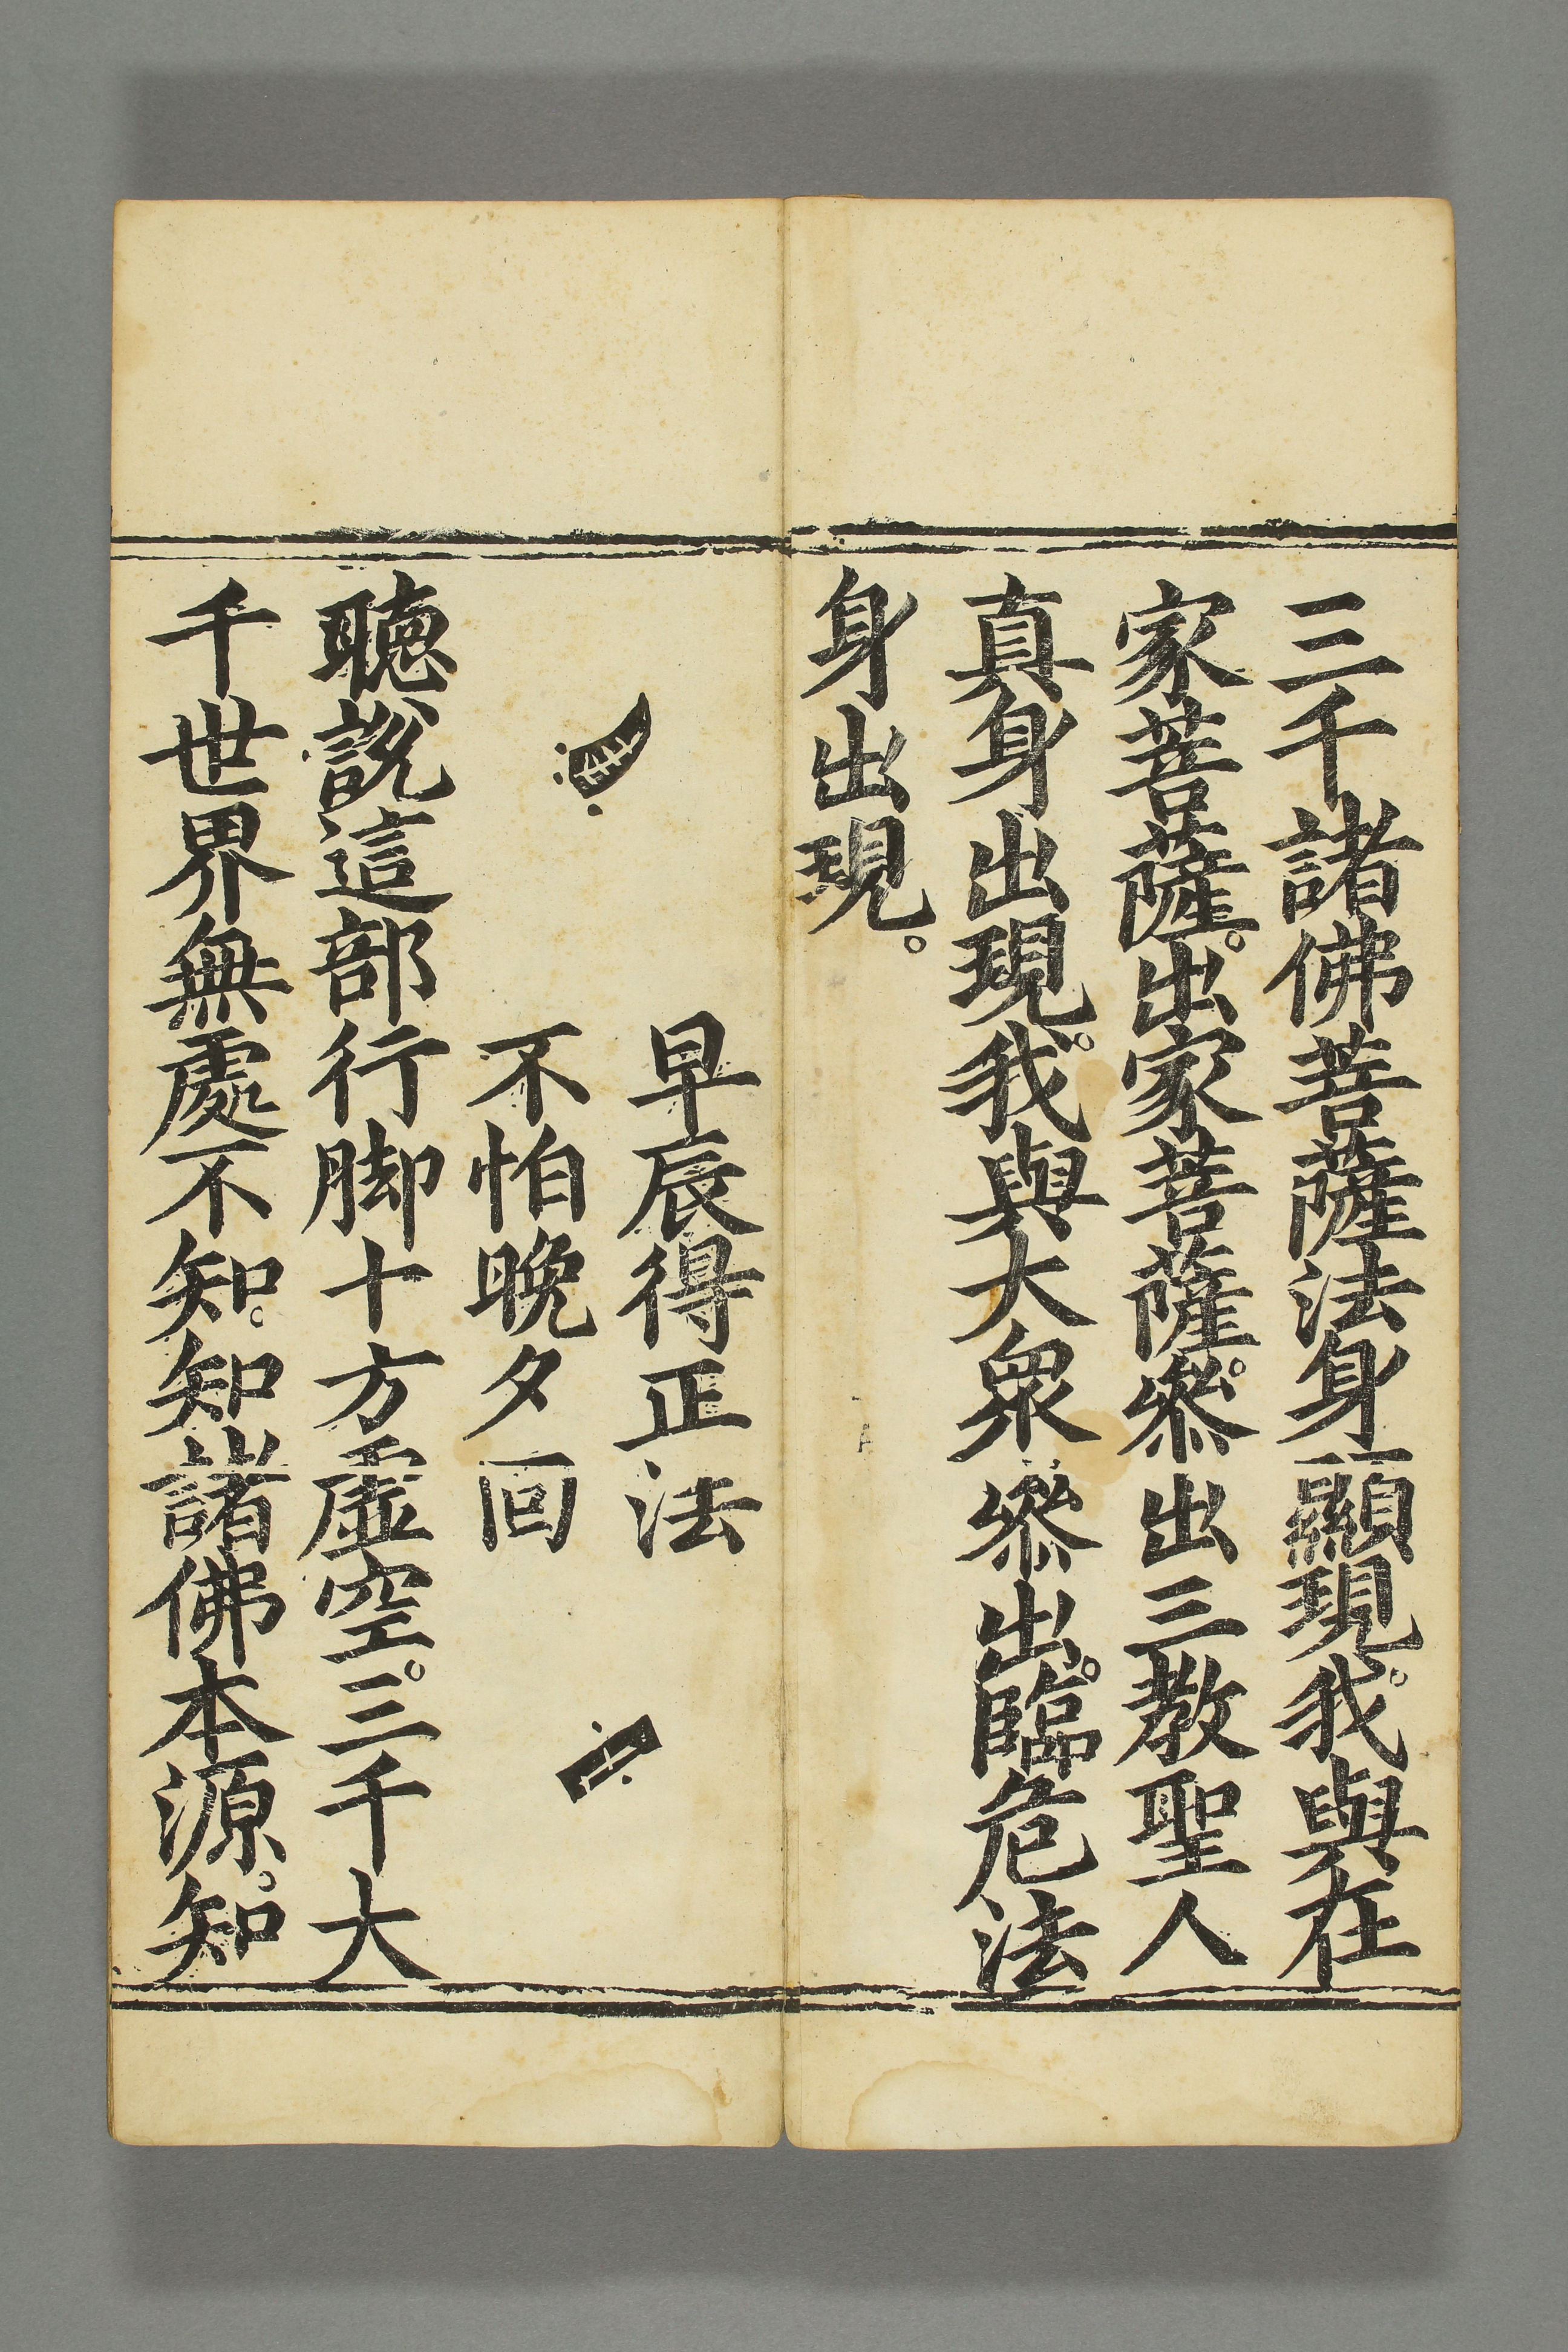 三千諸佛菩薩法身顯現。我與在
家菩薩。出家菩薩。叅出三教聖人
真身出現。我與大衆叅出。臨危法
身出現。
早辰得正法
不怕晚夕回
聽說這部行脚十方虛空。三千大
千世界無處不知。知諸佛本源。知